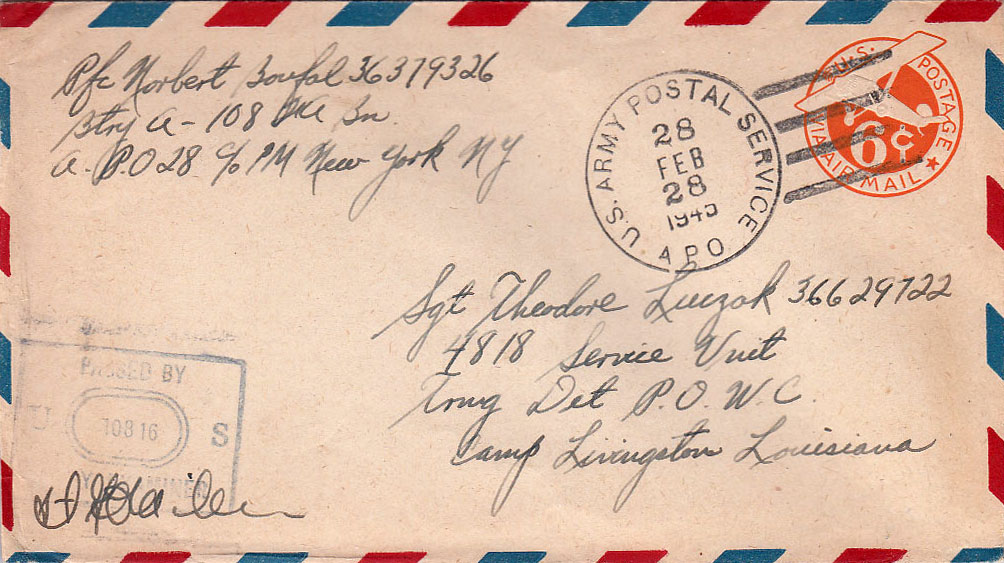 Pfc Norbert Boufal 36379326
Btry A - 108 FA Bn
A.P.O 28 c/o PM New York NY
U.S. ARMY POSTAL SERVICE
28
FEB
28
1945
APO
U.S. POSTAGE
6¢
VIA AIR MAIL
Sgt Theodore Luczak 36629722
4818 Service Unit
Trng Det P.O.W.C.
Camp Livingston Louisiana
PASSED BY
U 10816 S
ARMY EXAMINER